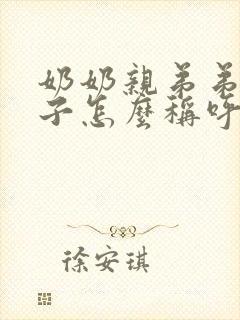 奶奶親弟弟
子怎麼稱呼
徐安琪